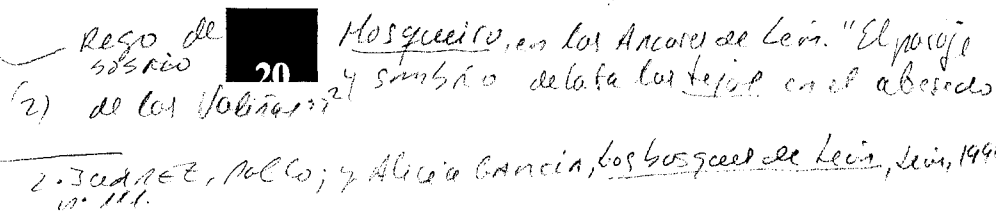 Rego de Mosqueiro, en los Ancares de León. "El paraje
sosrio 20 y sombrío delata los tejos en el abesedo
(2) de los Valiñas".²⁾
2. JUAREZ, Paco; y Alicia GARCIA, Los bosques de León, León,
p. 111.